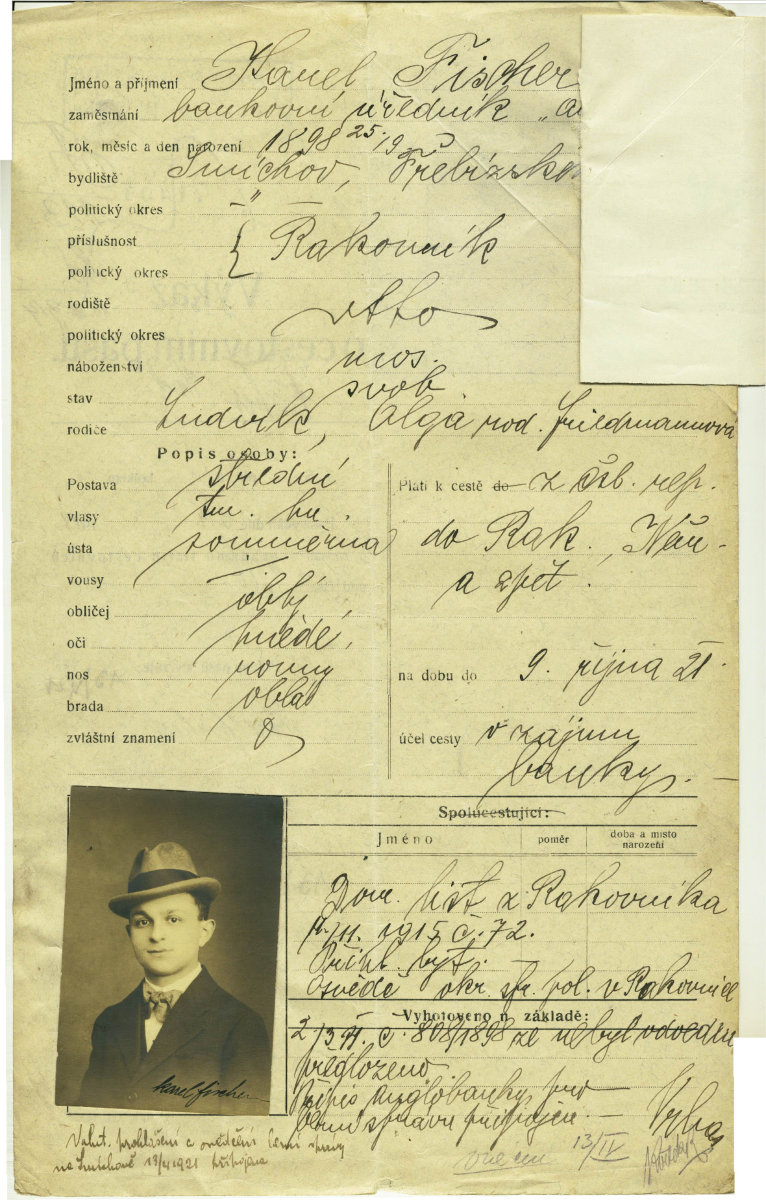 Jméno a příjmení Karel Fischer
zaměstnání bankovní úředník „
rok, měsíc a den narození 1898 25./9
bydliště Smíchov, Třebízsk
politický okres – " –
příslušnost { Rakovník
politický okres
rodiště
politický okres detto
náboženství mos.
stav svob.
rodiče Ludvík, Olga rod. Friedmannova
Popis osoby:
Postava střední
vlasy tm. hn.
ústa souměrná
vousy –
obličej oblý
oči hnědé,
nos rovný
brada oblá
zvláštní znamení 0
Platí k cestě do z čsl. rep.
do Rak., Něm.
a zpět.
na dobu do 9. října 21.
účel cesty v zájmu
banky. –
Spolucestující:
Jméno poměr doba a místo narození
Dom. list z Rakovníka
11. 1915 č. 72.
Přihl. byt.
osvědč. okr. spr. pol. v Rakovníce
Vyhotoveno n základě:
č. 808/1898 že nebyl odveden
předloženo.
přípis Anglobanky pro
berní správu připojen. –
13/IV
Karel Fischer
prohlášení a osvědčení berní správy
na Smíchově 13/4 1921 připojena